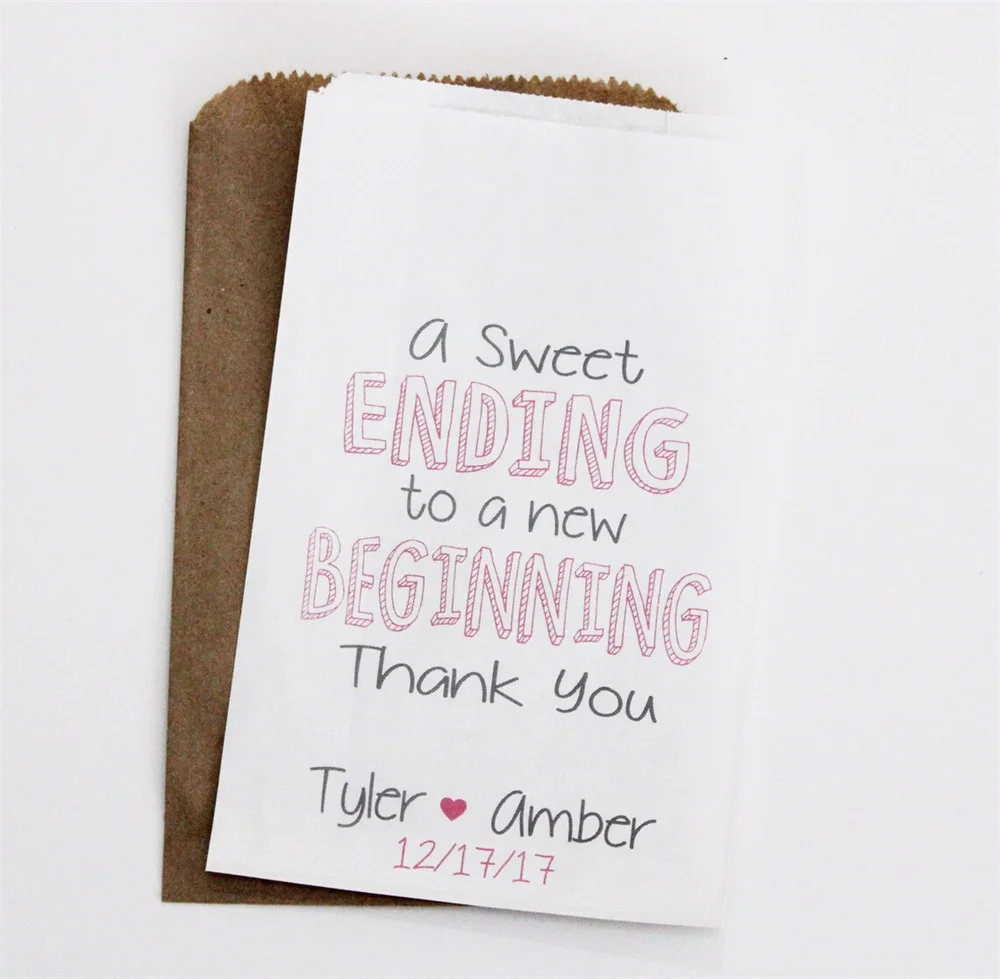 a Sweet
ENDING
to a new
BEGINNING
Thank you
Tyler ♥ amber
12/17/17